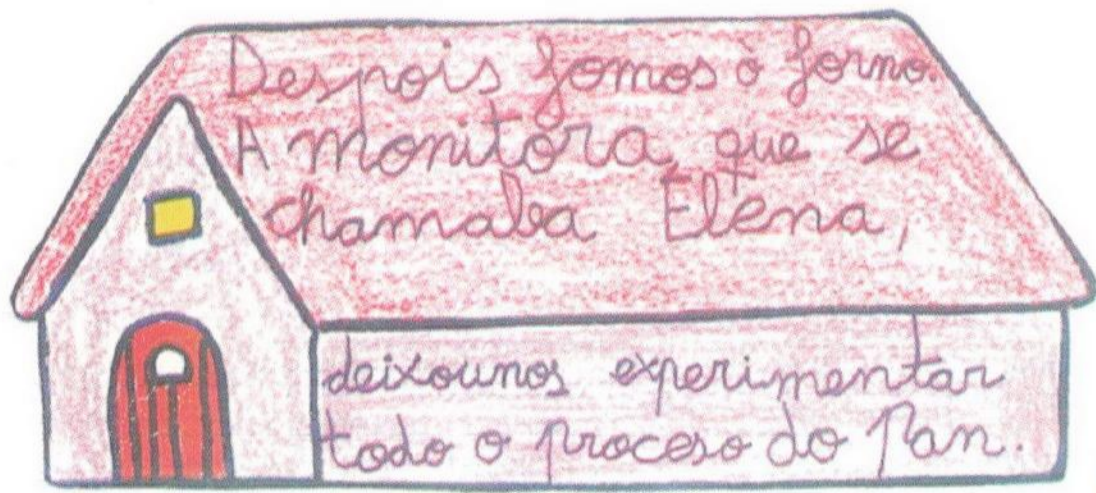 Despois fomos ó forno.
A monitora, que se
chamaba Elena,
deixounos experimentar
todo o proceso do Pan.